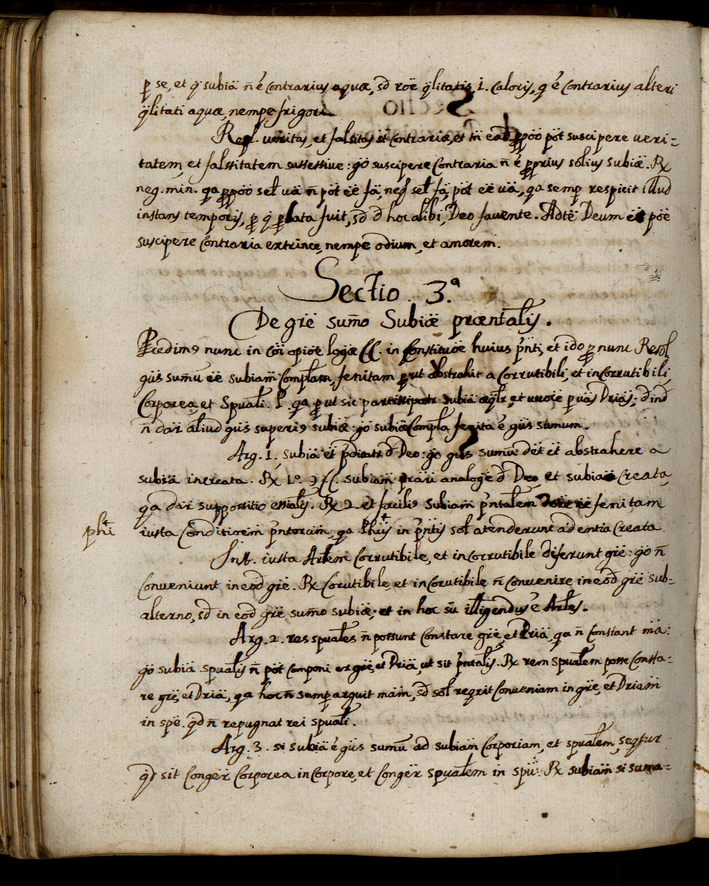 p se, et q subiã ñ ẽ contrarius aquæ, sd roẽ qlitatis, i. caloris, q ẽ contrarius alteri
qlitati aquæ, nempe frigori.
Repl. veritas, et falsitas st contraria, et tñ ead ppõo põt suscipere veri-
tatem, et falsitatem sussessiue: go suscipere contraria ñ ẽ pprius solius subiæ. Rx
neg. min. qa ppõo sel vã ñ põt eẽ fã, neq sel fã, põt eẽ vã, qa semp respicit illud
instans temporis, p q plata fuit, sd d hoc alibi, Deo fauente. Adtẽ Deum põe
suscipere contraria extrince, nempe odium, et amorem.
Sectio. 3.ª
De grẽ sumo Subiæ prœntalis.
Predimus nunc in coi opiõe logæ CC. in constituõe huius pnti, et ido p nunc Resol
gus sumu eẽ subiam complam, fenitam put abstrahit a corrutibili, et incorrutibili
corporea, et spuali. P. qa put sic partisipatr subia aqlr, et unoce p vas Drias; dind
ñ dar aliud gus superius subiæ: go subia compla fenita ẽ gus sumum.
Arg. 1. subia et pdicatr d Deo: go gus sumum det eẽ abstrahere a
subiã increata. Rx 1º. 9 CC. subiam prari analoge d Deo, et subiæ creata,
qa dar suppostitio essialis. Rx 2. et facilis subiam pntalem fenitam
phi iusta conditionem pntorum, qa Phii in pntis sol atenderunt ad entia creata
Inst. iusta Artem corrutibile, et incorrutibile diferunt grẽ: go ñ
conueniunt in eod grẽ. Rx corutibile, et incorutibile ñ conuenire in eod grẽ sub-
alterno, sd in eod grẽ sumo subiæ; et in hoc su illigendus ẽ Artes.
Arg. 2. res spuales ñ possunt constare grẽ, et Driã, qa ñ constant mã:
go subia spualis ñ põt componi ex grẽ, et Driã, ut sit pntalis. Rx rem spualem posse consta-
re grẽ, et Driã, qa hoc ñ semp arguit mam, sd sol reqrit conueniam in grẽ, et Driam
in spẽ. qd ñ repugnat rei spuali.
Arg. 3. si subia ẽ gus sumu ad subiam corporiam, et spualem, seqtur
qd sit conger corporea in corpore, et conger spualem in spu: Rx subiam si suma-